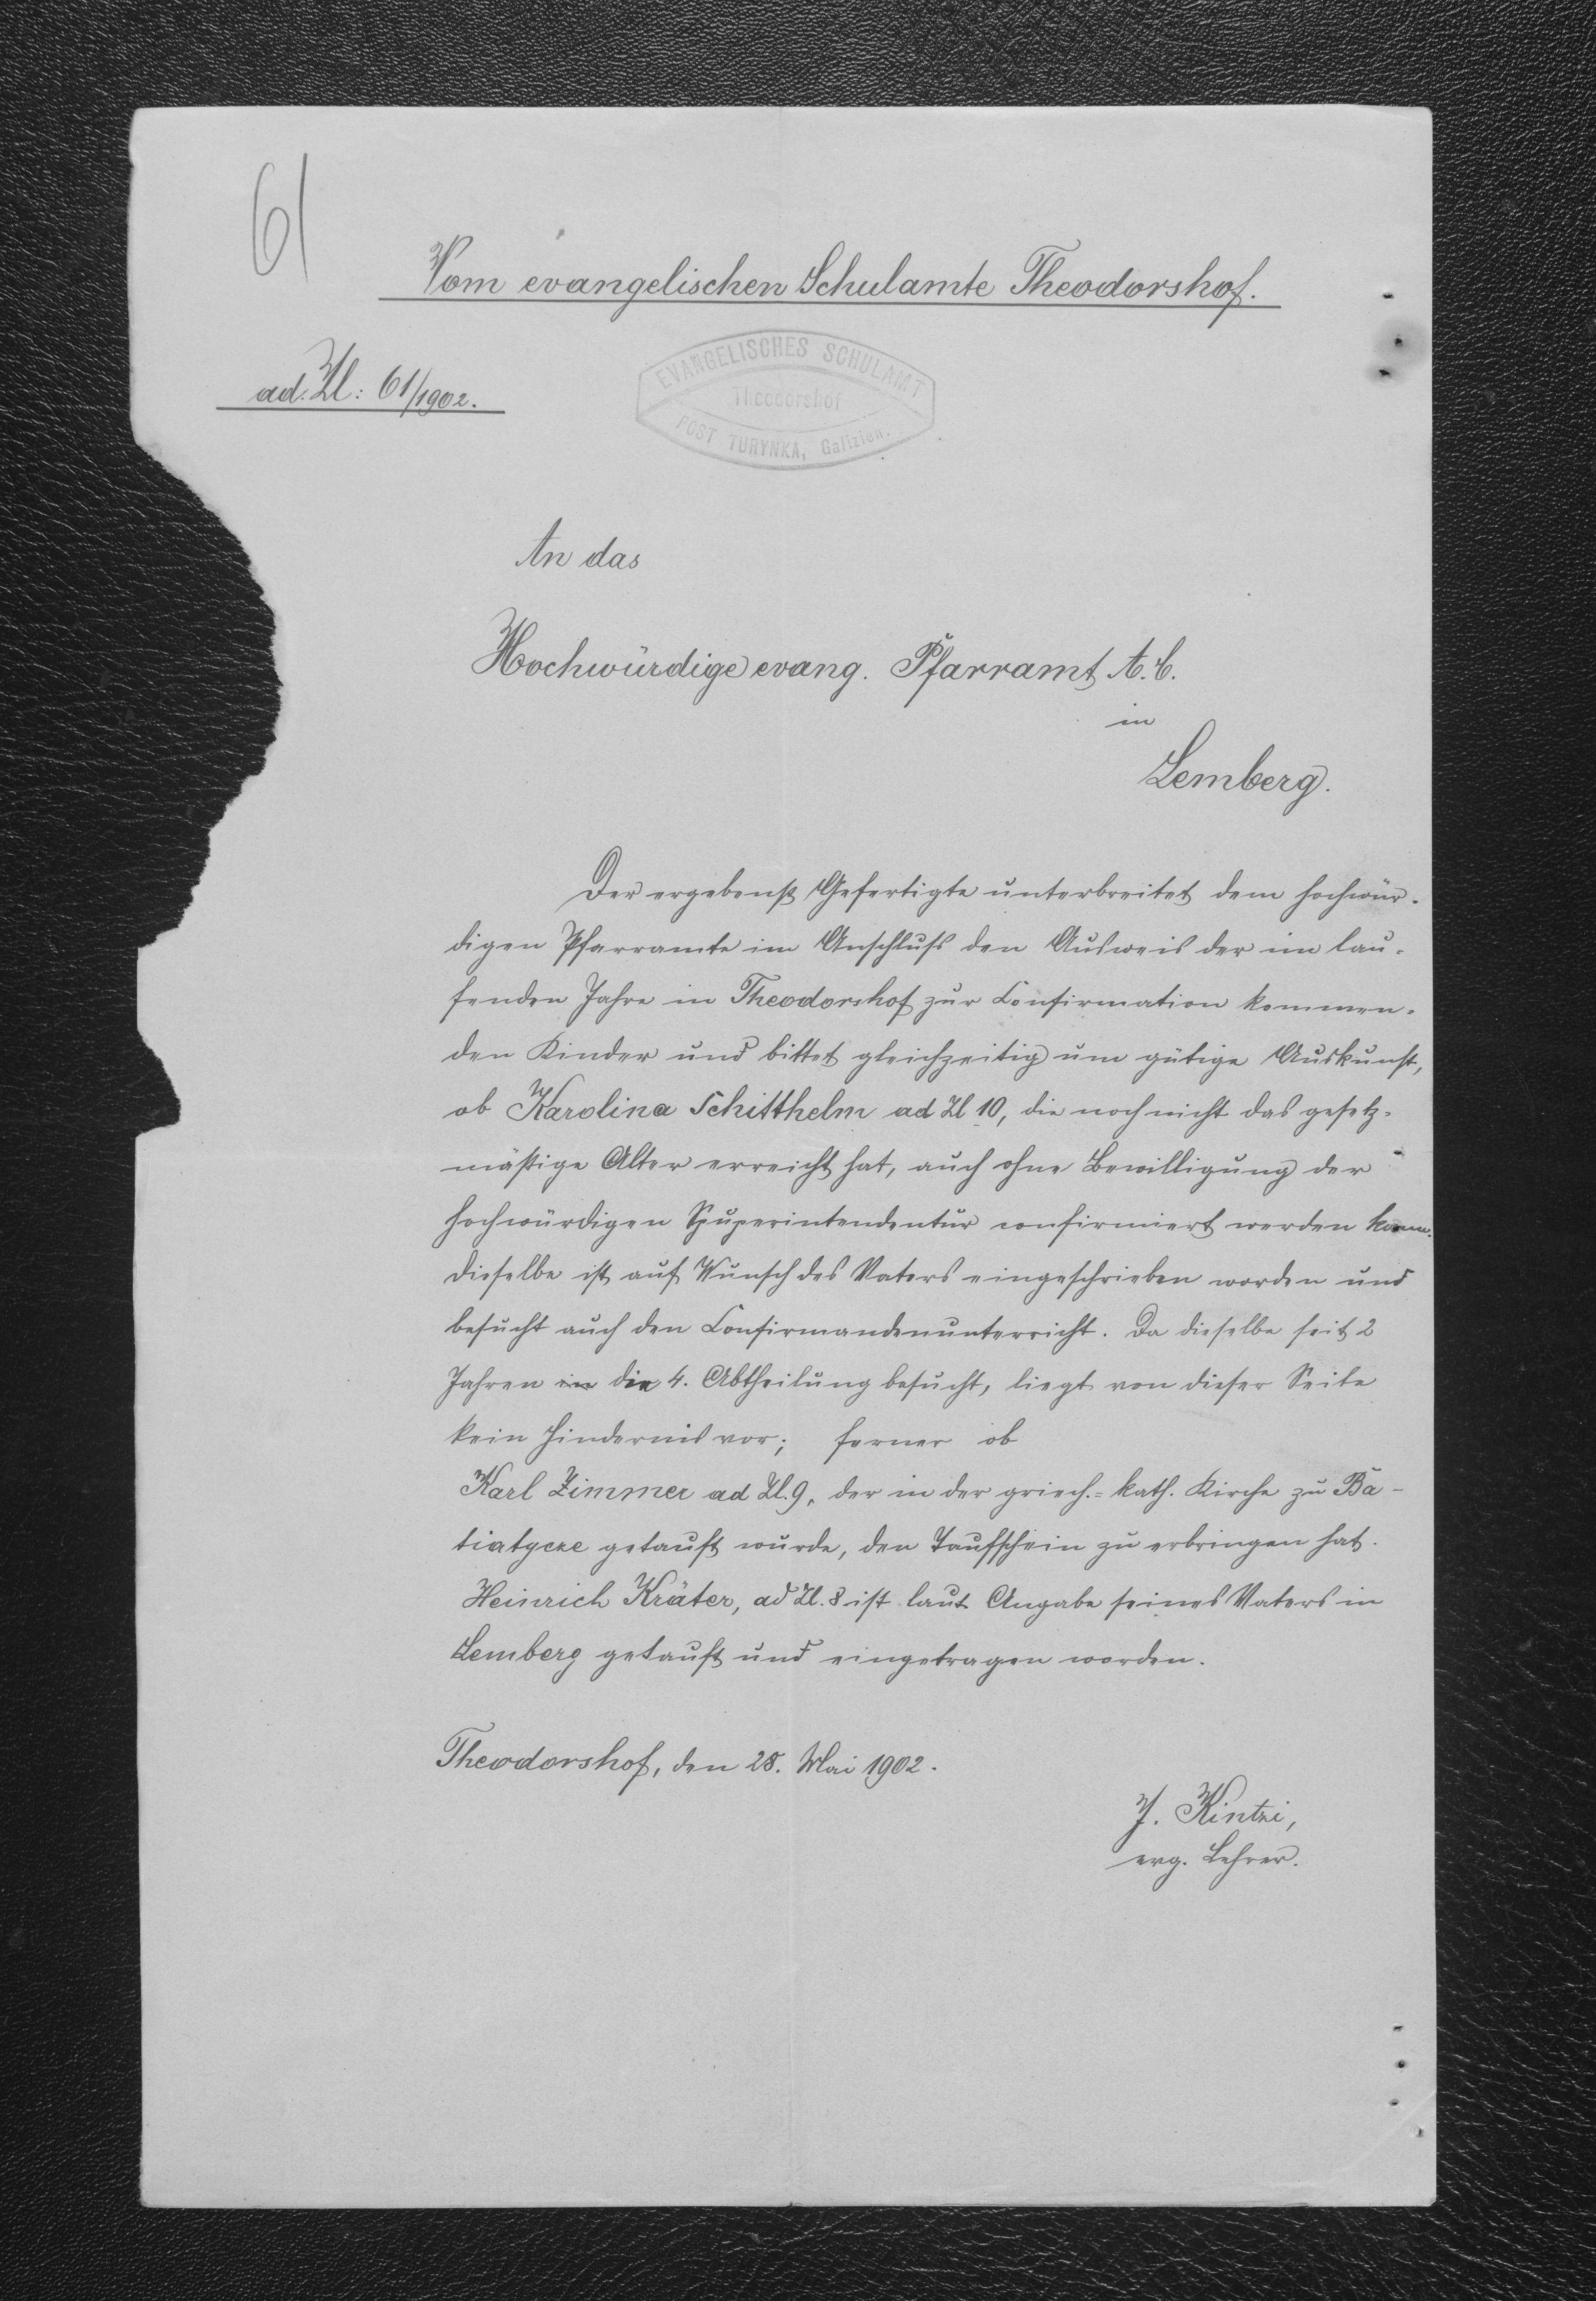 61
Vom evangelischen Schulamte Theodorshof.
ad. Zl: 61/1902.
EVANGELISCHES SCHULAMT
Theodorshof
POST TURYNKA, Galizien.
An das
Hochwürdige evang. Pfarramt A. C.
in
Lemberg.
Der ergebenst Gefertigte unterbreitet dem hochwür-
digen Pfarramte im Anschluss den Ausweis der im lau-
fenden Jahre in Theodorshof zur Confirmation kommen-
den Kinder und bittet gleichzeitig um gütige Auskunft,
ob Karolina Schitthelm ad Zl 10, die noch nicht das gesetz-
mäßige Alter erreicht hat, auch ohne Bewilligung der
hochwürdigen Superintendentur confirmiert werden kann.
Dieselbe ist auf Wunsch des Vaters eingeschrieben worden und
besucht auch den Confirmandenunterricht. Da dieselbe seit 2
Jahren in die 4. Abtheilung besucht, liegt von dieser Seite
kein Hindernis vor; ferner ob
Karl Zimmer ad Zl. 9, der in der griech.= kath. Kirche zu Ba-
tiatycze getauft wurde, den Taufschein zu erbringen hat.
Heinrich Kräter, ad Zl. 8 ist laut Angabe seines Vaters in
Lemberg getauft und eingetragen worden.
Theodorshof, den 28. Mai 1902.
J. Kintzi,
erg. Lehrer.